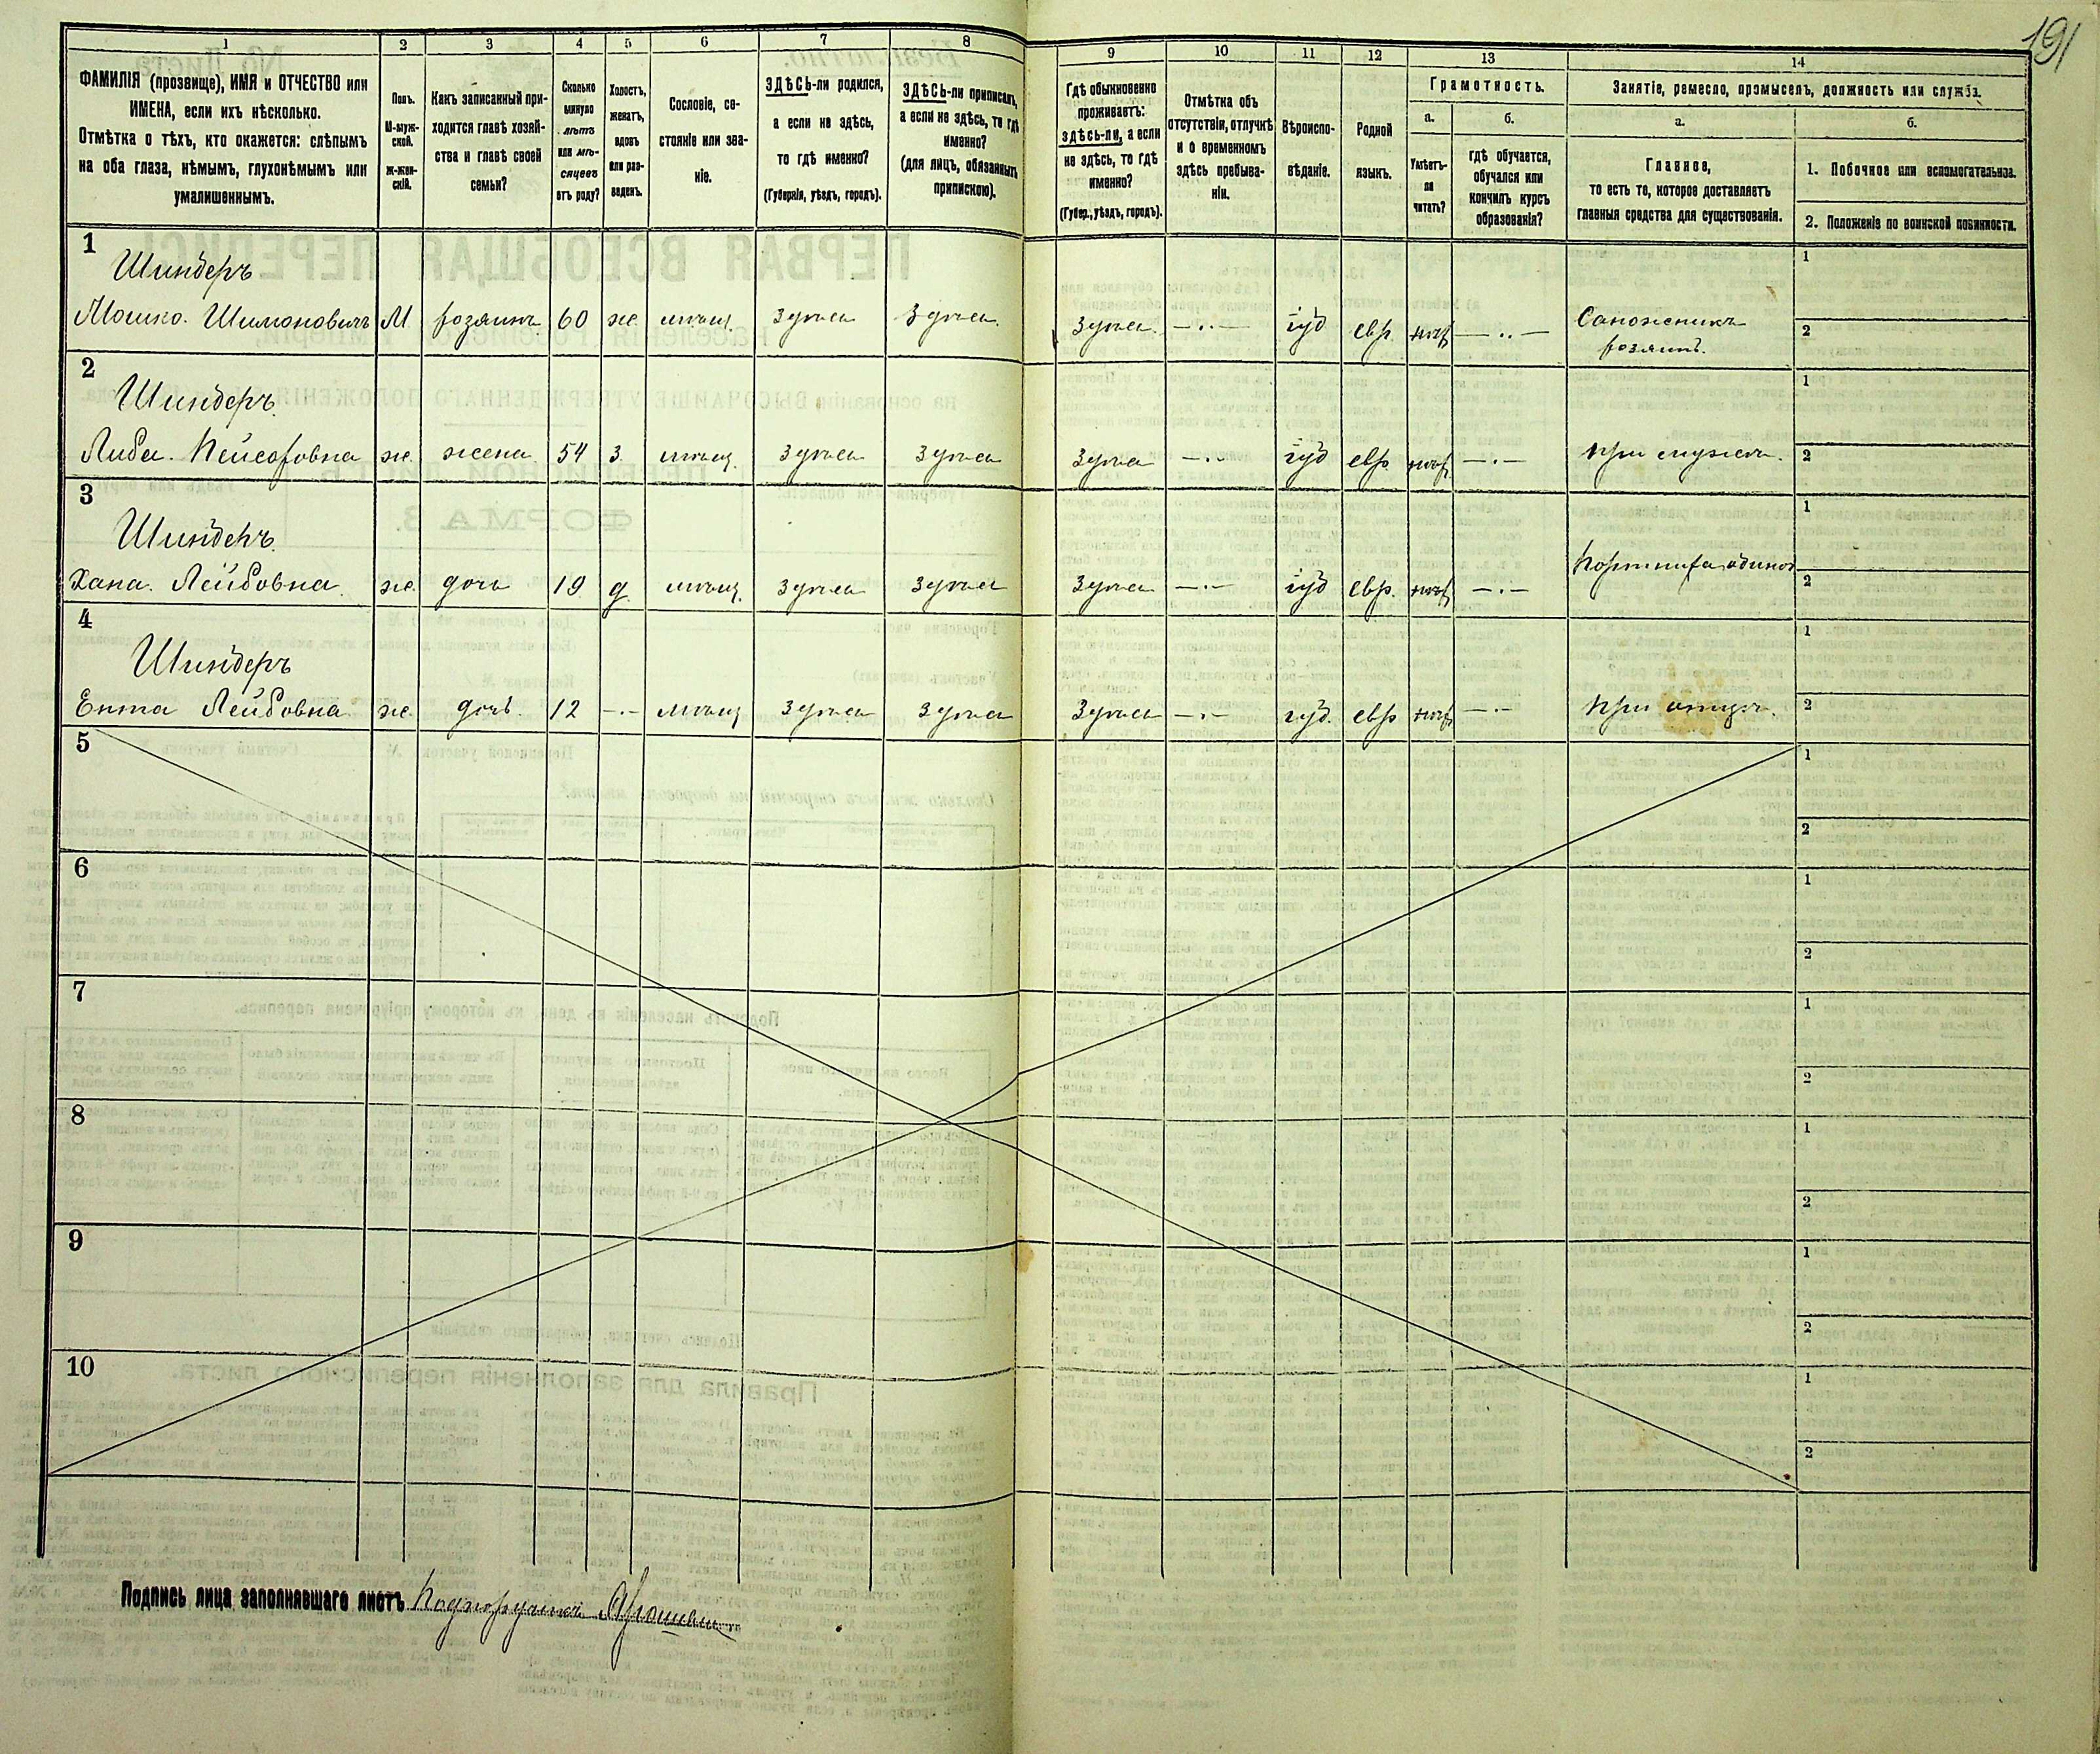 191
1 2 3 4 5 6 7 8 9 10 11 12 13 14
ФАМИЛІЯ (прозвище), ИМЯ и ОТЧЕСТВО или
ИМЕНА, если ихъ нѣсколько.
Отмѣтка о тѣхъ, кто окажется: слѣпымъ
на оба глаза, нѣмымъ, глухонѣмымъ или
умалишеннымъ.
Полъ.
М-муж-
ской.
Ж-жен-
скій.
Какъ записанный при-
ходится главѣ хозяй-
ства и главѣ своей
семьи?
Сколько
минуло
лѣтъ
или мѣ-
сяцевъ
отъ роду?
Холостъ,
женатъ,
вдовъ
или раз-
веденъ.
Сословіе, со-
стояніе или зва-
ніе.
ЗДѢСЬ-ли родился,
а если не здѣсь,
то гдѣ именно?
(Губернія, уѣздъ, городъ).
ЗДѢСЬ-ли приписанъ,
а если не здѣсь, то гдѣ
именно?
(для лицъ, обязанныхъ
припискою).
Гдѣ обыкновенно
проживаетъ:
здѣсь-ли, а если
не здѣсь, то гдѣ
именно?
(Губер., уѣздъ, городъ).
Отмѣтка объ
отсутствіи, отлучкѣ
и о временномъ
здѣсь пребыва-
ніи.
Вѣроиспо-
вѣданіе.
Родной
языкъ.
Грамотность.
а.
Умѣетъ-
ли
читать?
б.
гдѣ обучается,
обучался или
кончилъ курсъ
образованія?
Занятіе, ремесло, промыселъ, должность или служба.
а.
Главное,
то есть то, которое доставляетъ
главныя средства для существованія.
б.
1. Побочное или вспомогательное.
2. Положеніе по воинской повинности.
1
Шиндеръ
Мошко. Шимоновичъ М хозяинъ 60 ж. мѣщ. Здѣсь Здѣсь. Здѣсь. іуд евр. нѣт Сапожникъ
хозяинъ.
1
2
2
Шиндеръ.
Либа. Пейсаховна ж. жена 54 З. мѣщ. Здѣсь Здѣсь Здѣсь іуд евр. нѣт При мужѣ.
1
2
3
Шиндеръ.
Хана. Лейбовна. ж. дочь 19 д. мѣщ. Здѣсь Здѣсь Здѣсь іуд евр. нѣт Портниха одиноч
1
2
4
Шиндеръ
Ента Лейбовна. ж. дочь. 12 мѣщ Здѣсь Здѣсь Здѣсь іуд. евр нѣт При отцѣ.
1
2
5
1
2
6
1
2
7
1
2
8
1
2
9
1
2
10
1
2
Подпись лица заполнявшаго листъ Подпоручикъ